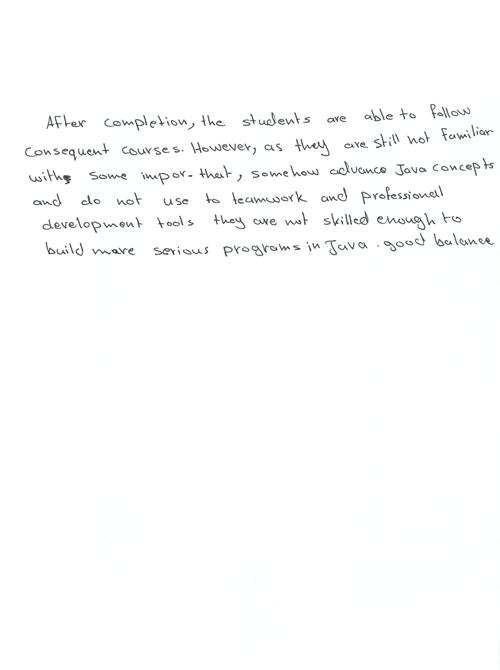 After completion, the students are able to follow
Consequent courses. However, as they are still not familiar
with some impor-that, somehow advance Java concepts
and do not use to teamwork and professional
development tools they are not skilled enough to
build more serious programs in Java. good balance